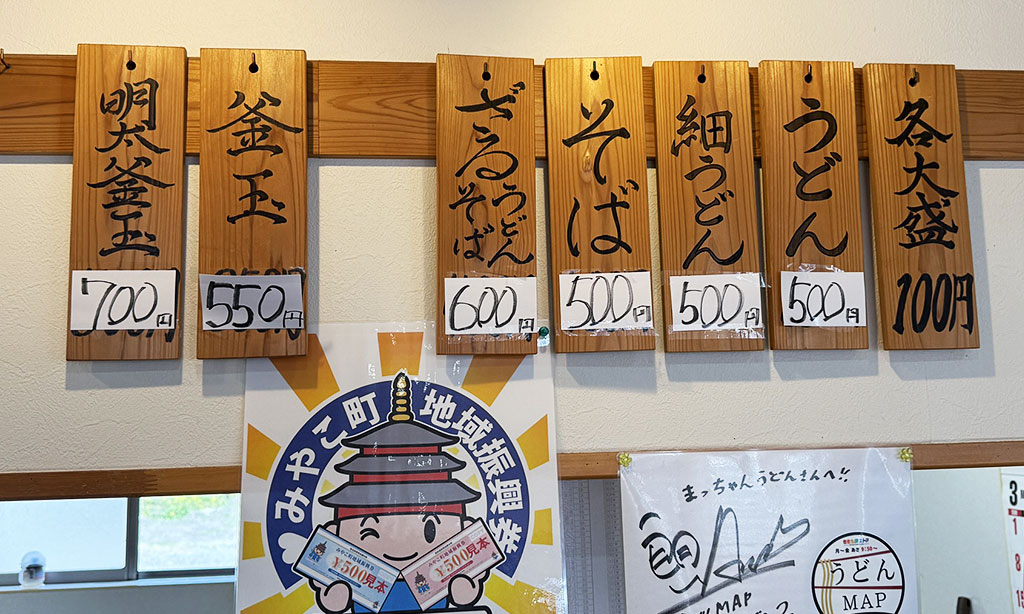 明太釜玉
700円
釜玉
550円
ざるうどん
そば
600円
そば
500円
細うどん
500円
うどん
500円
各大盛
100円
みやこ町 地域振興券
みやこ町地域振興券
¥500見本
¥500見本
まっちゃんうどんさんへ!!
うどん
MAP
月〜金 あさ9:50〜
うどんMAP
3
1
8